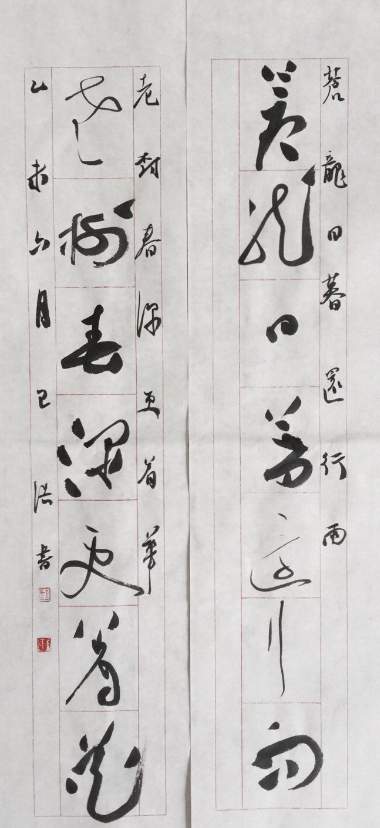 蒼龍日暮還行雨
蒼龍日暮還行雨
老樹春深更着華
老樹春深更着花
乙未六月巳浩書